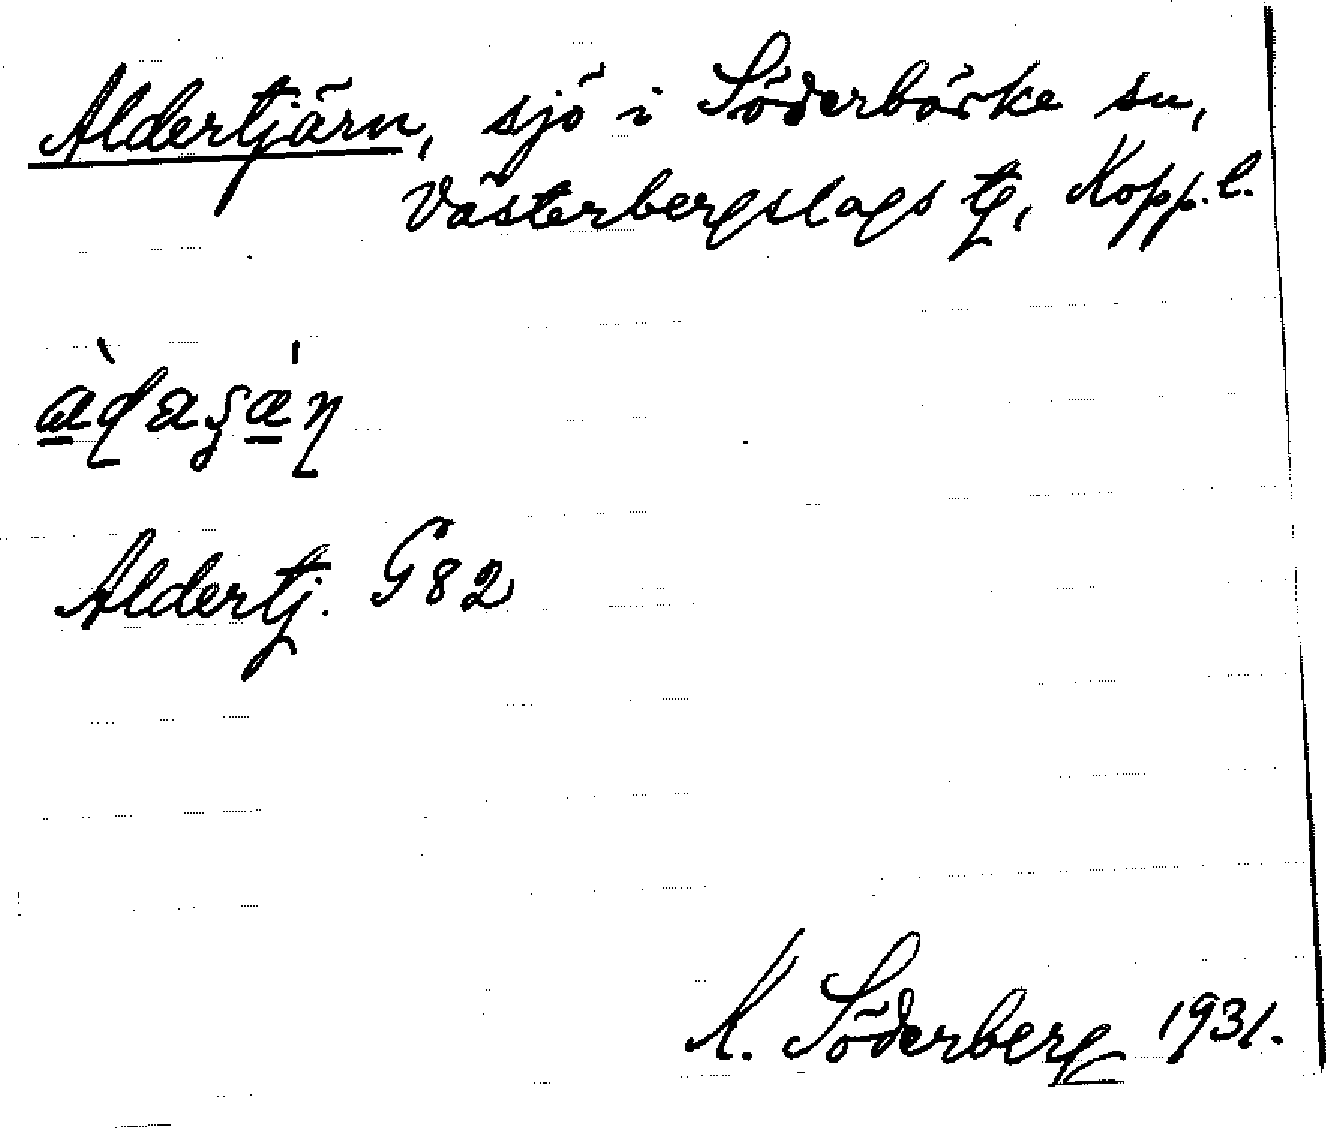 Aldertjärn, sjö i Söderbärke sn,
Västerbergslags tg, Kopp. l.
Aldertj. G 82
K. Söderberg 1931.